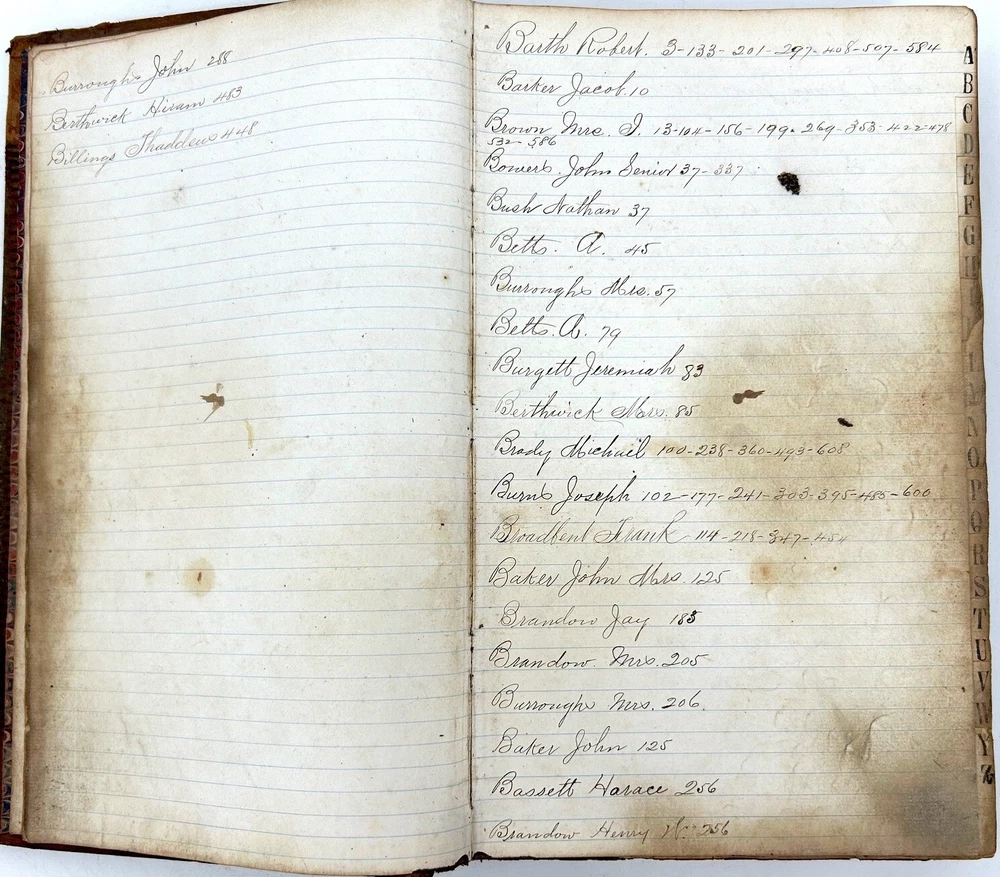 Burroughs John 288
Berthwick Hiram 483
Billings Thaddeus 448
Barth Robert. 3-133-201-297-408-507-584
Barker Jacob. 10
Brown Mrs. I. 13-104-156-199-269-353-422-478
532-586
Bowers John Senior 37-337
Bush Nathan 37
Betts. A. 45
Burroughs Mrs. 57
Betts. A. 79
Burgett Jeremiah 83
Berthwick Mrs. 85
Brady Michael 100-238-360-493-608
Burns Joseph 102-177-241-303-395-485-600
Broadbent Frank 114-218-347-454
Baker John Mrs. 125
Brandow Jay 185
Brandow Mrs. 205
Burroughs Mrs. 206.
Baker John 125
Bassett Horace 256
Brandow Henry 256
A
B
C
D
E
F
G
H
L
M
N
O
P
Q
R
S
T
U
V
W
Y
Z